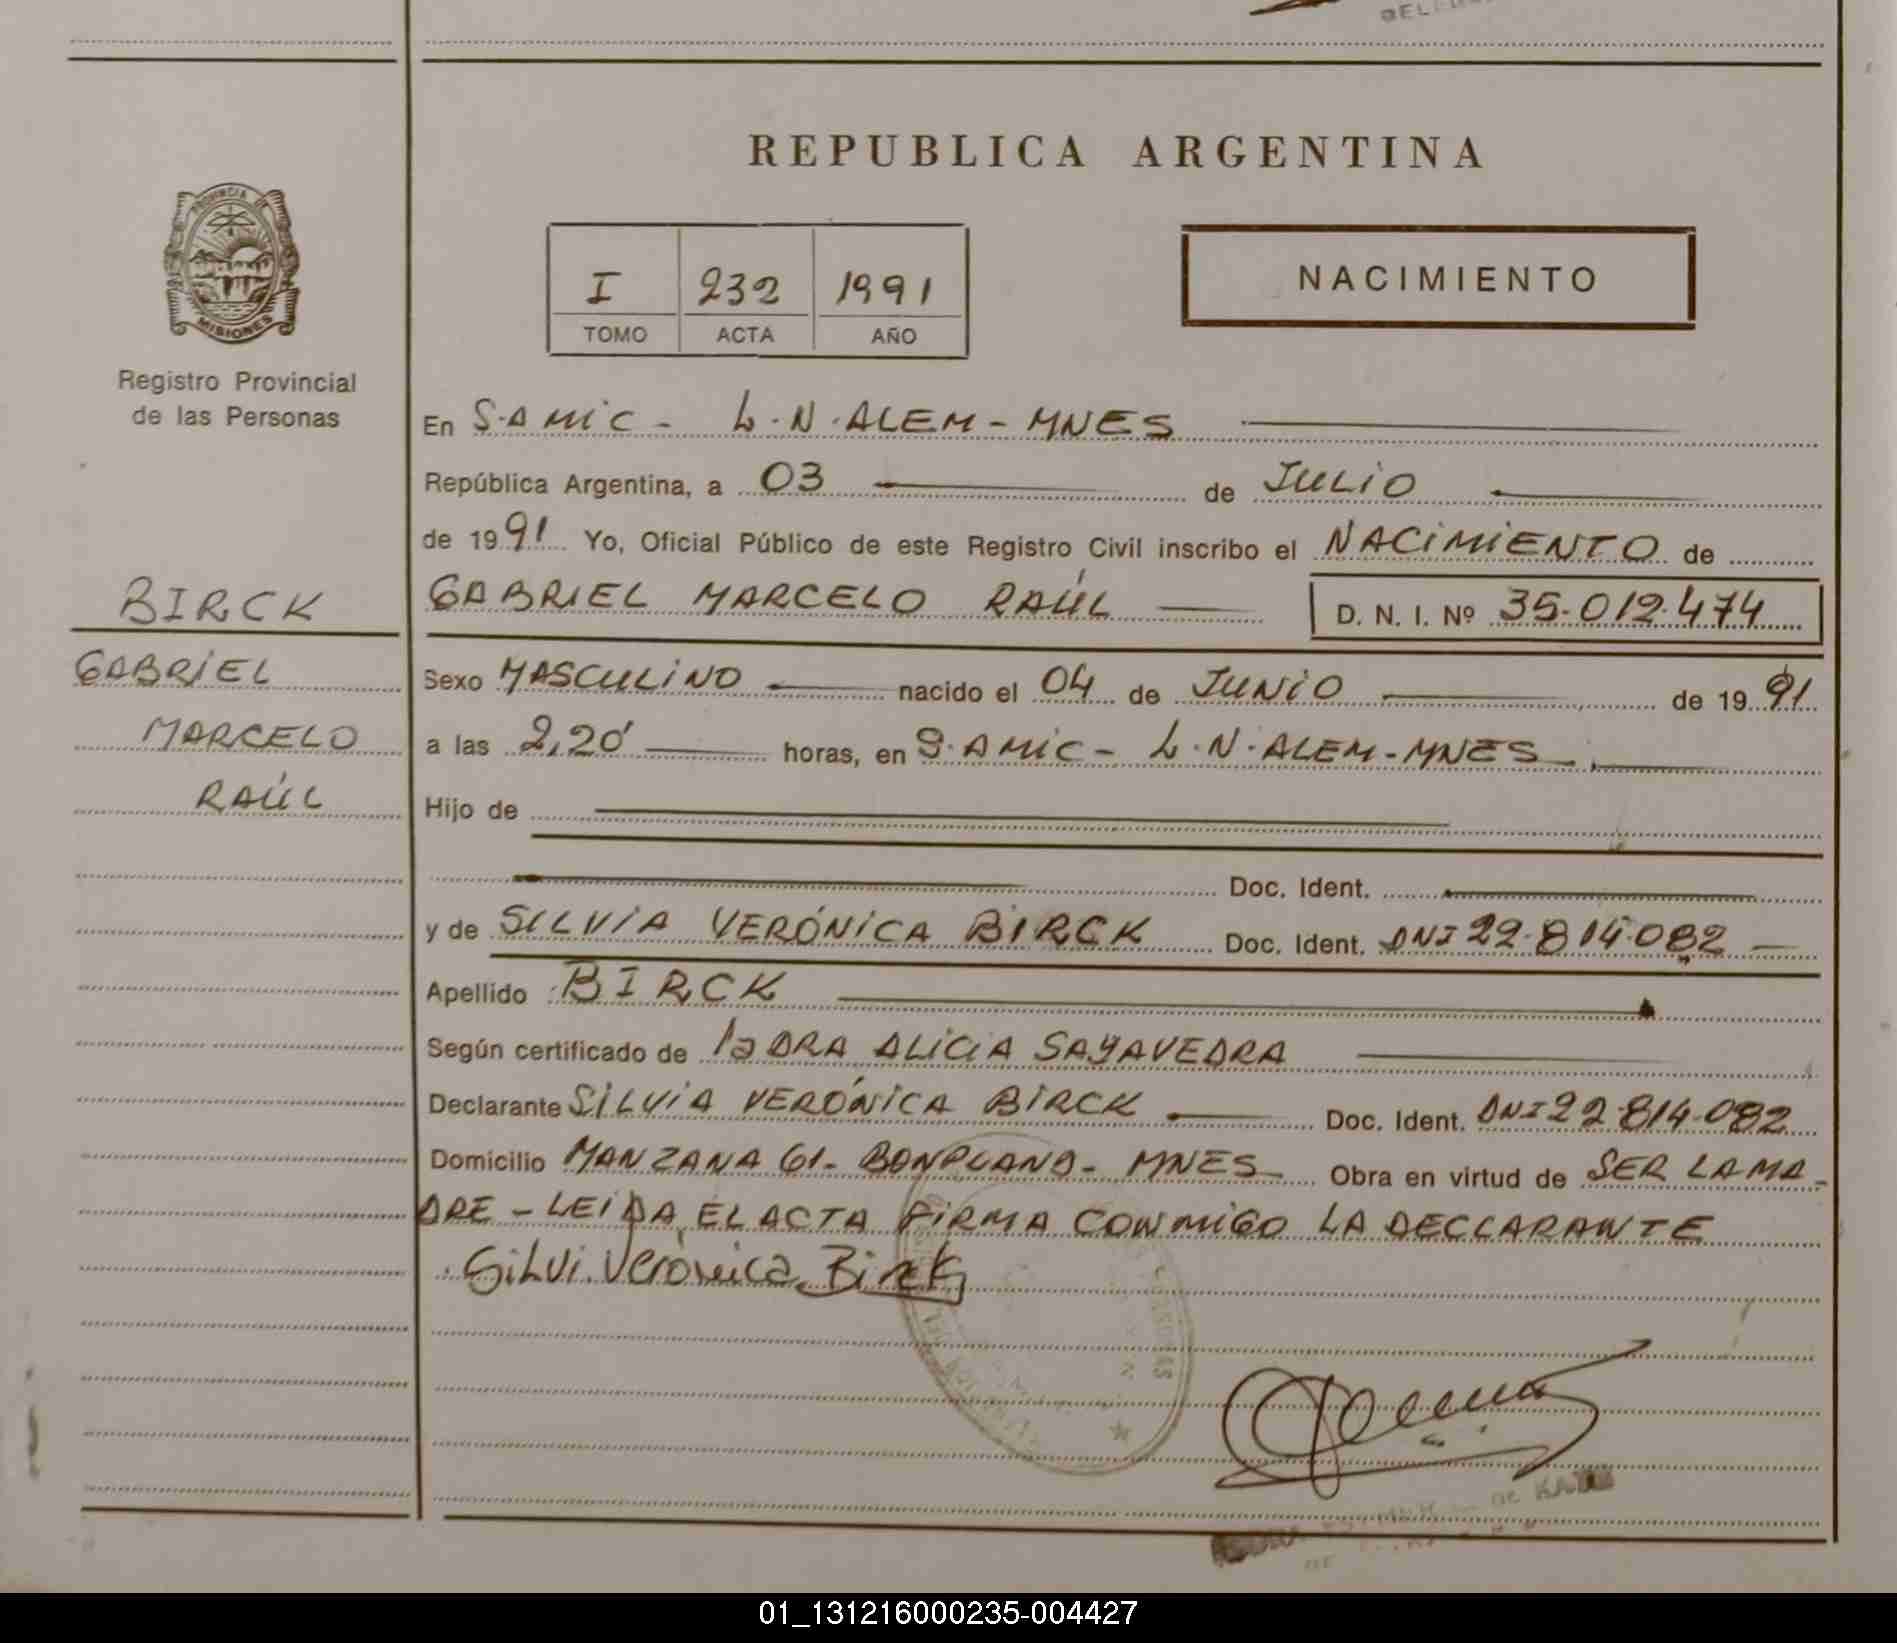 REPUBLICA ARGENTINA
PROVINCIA DE
MISIONES
Registro Provincial
de las Personas
I 232 1991
TOMO ACTA AÑO
NACIMIENTO
BIRCK
GABRIEL
MARCELO
RAÚL
En S.AMIC - L.N.ALEM - MNES
República Argentina, a 03 de JULIO
de 1991 Yo, Oficial Público de este Registro Civil inscribo el NACIMIENTO de
GABRIEL MARCELO RAÚL D. N. I. Nº 35.012.474
Sexo MASCULINO nacido el 04 de JUNIO de 1991
a las 2,20' horas, en S.AMIC - L.N.ALEM - MNES
Hijo de
Doc. Ident.
y de SILVIA VERÓNICA BIRCK Doc. Ident. DNI 22.814.082
Apellido BIRCK
Según certificado de la DRA ALICIA SAYAVEDRA
Declarante SILVIA VERÓNICA BIRCK Doc. Ident. DNI 22.814.082
Domicilio MANZANA 61 - BONPLAND - MNES Obra en virtud de SER LA MA-
DRE - LEIDA EL ACTA FIRMA CONMIGO LA DECLARANTE
Silvi. Verónica Birck
01_131216000235-004427